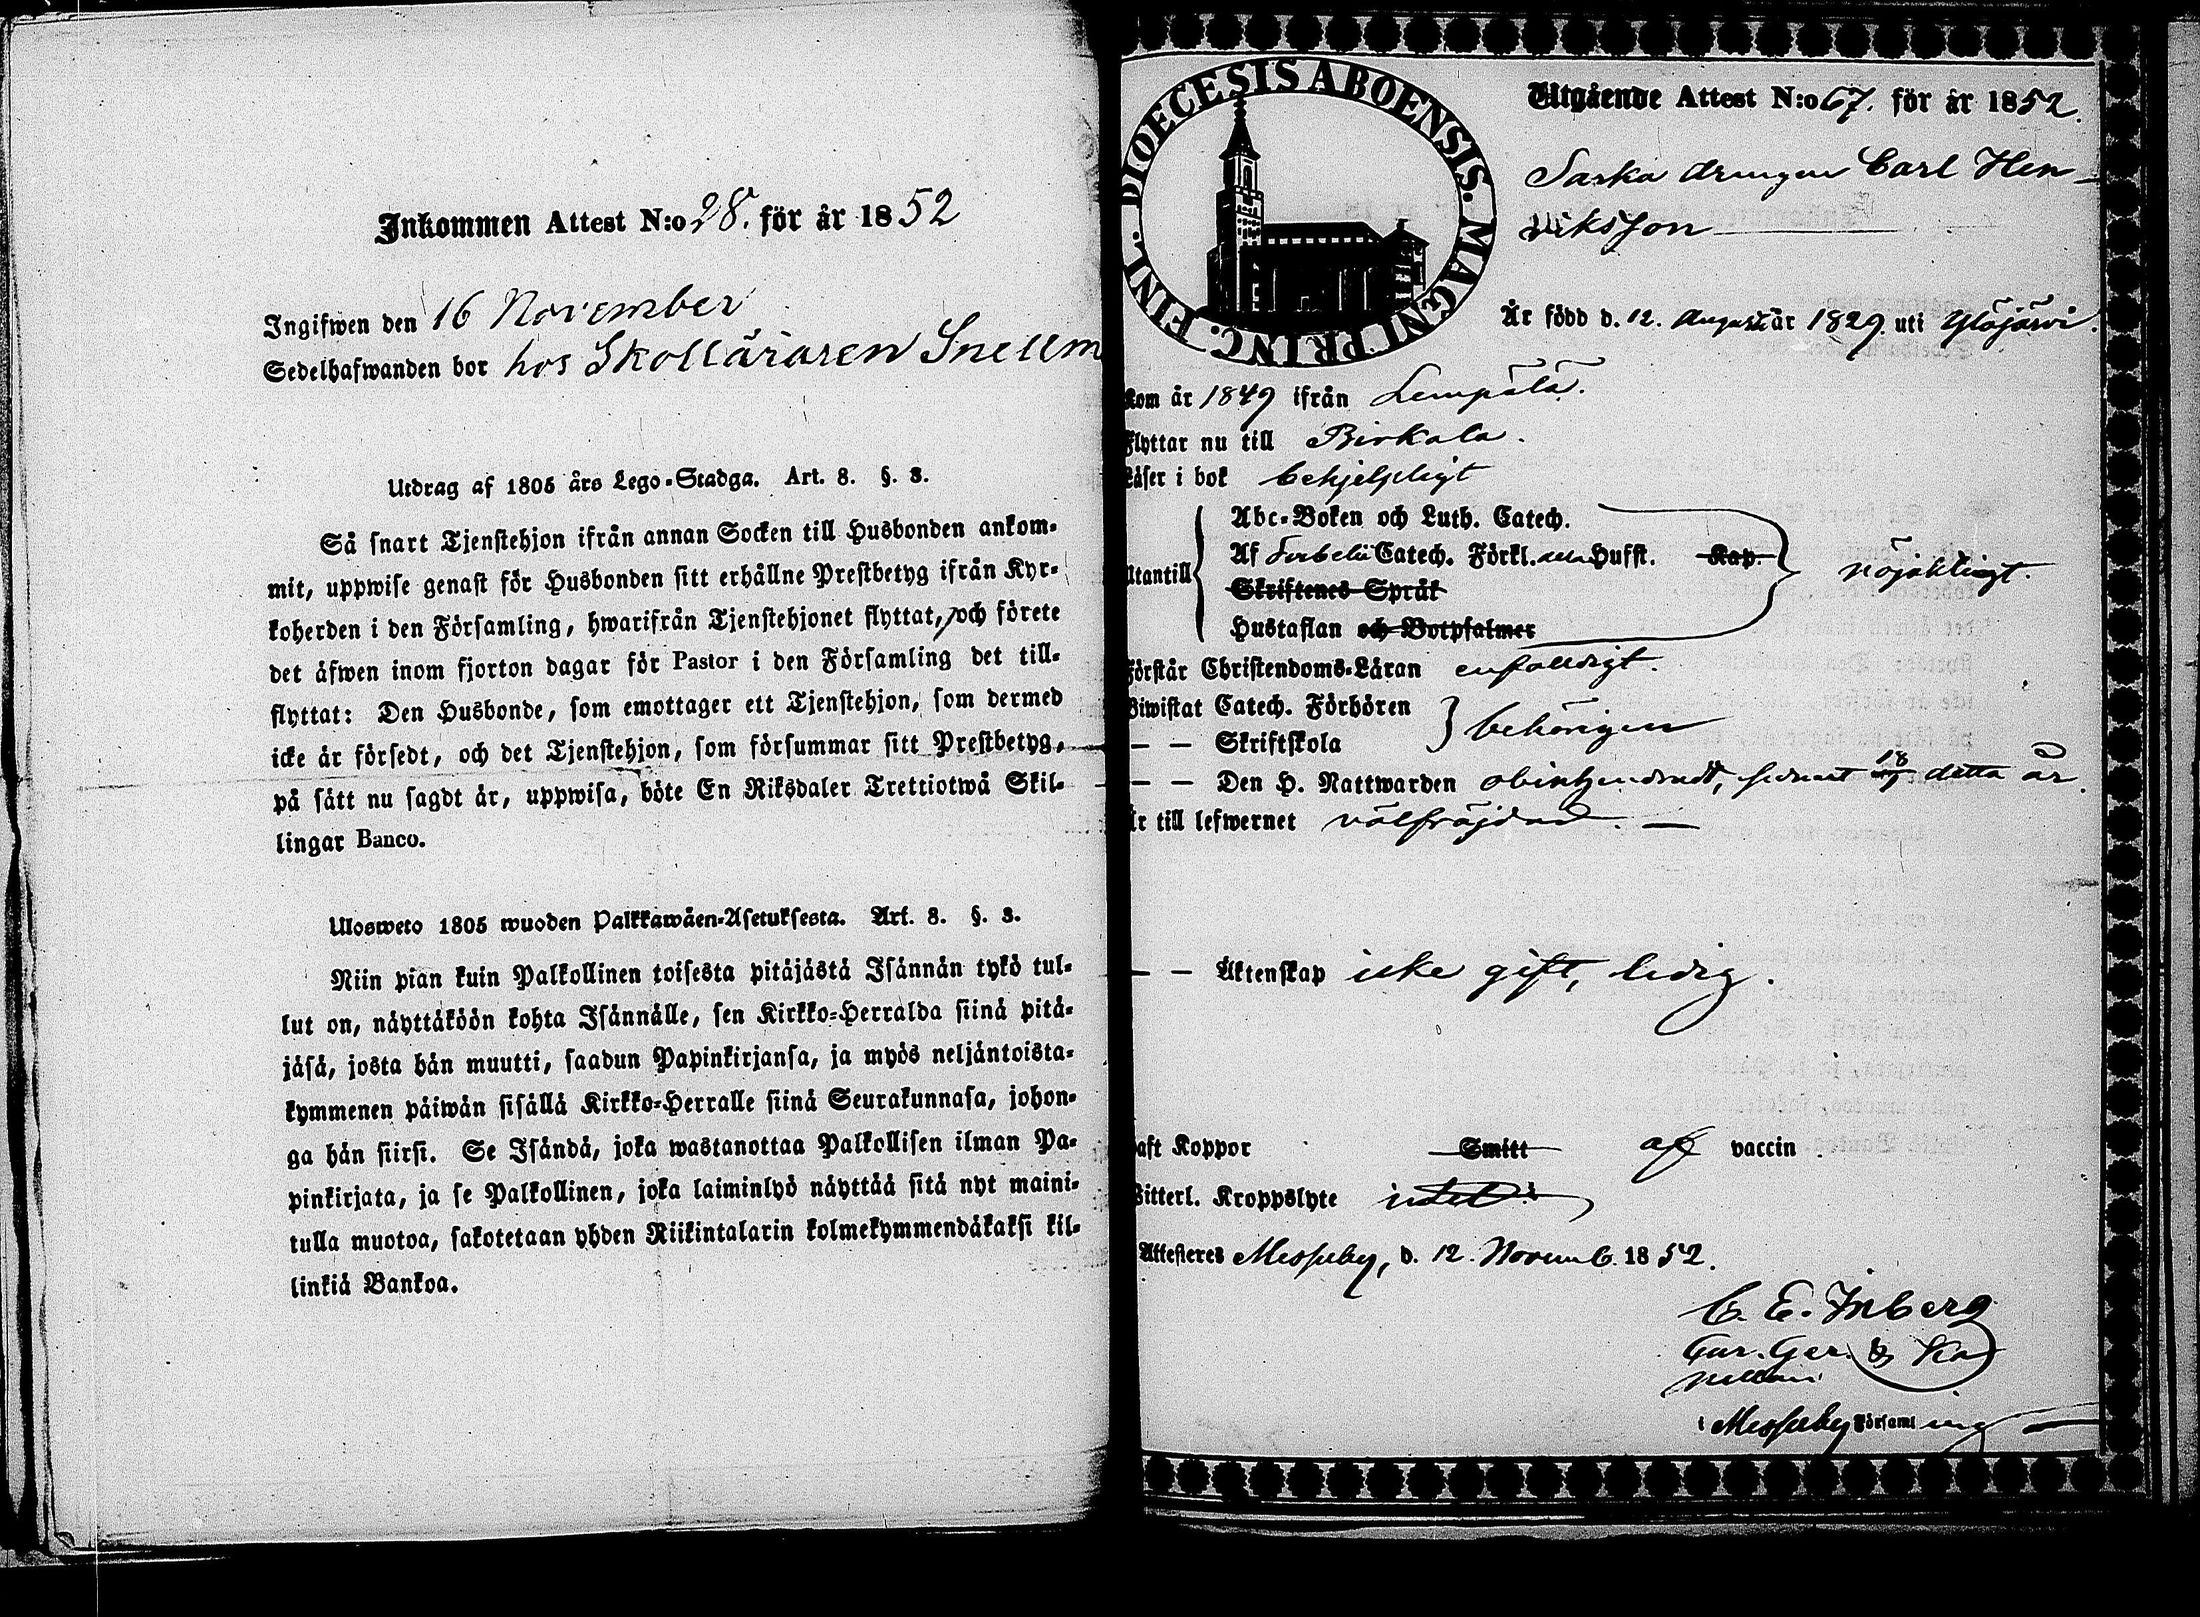 Inkommen Attest N:o 28. för år 1852
Ingifwen den 16 November
Sedelhafwanden bor hos Skolläraren Snellm
Utdrag af 1805 års Lego-Stadga. Art. 8. §. 3.
Så snart Tjenstehjon ifrån annan Socken till Husbonden ankom-
mit, uppwise genast för Husbonden sitt erhållne Prestbetyg ifrån Kyr-
koherden i den Församling, hwarifrån Tjenstehjonet flyttat, och förete
det äfwen inom fjorton dagar för Pastor i den Församling det till-
flyttat: Den Husbonde, som emottager ett Tjenstehjon, som dermed
icke är försedt, och det Tjenstehjon, som försummar sitt Prestbetyg,
på sätt nu sagdt är, uppwisa, böte En Riksdaler Trettiotwå Skil-
lingar Banco.
Ulosweto 1805 wuoden Palkkawäen-Asetuksesta. Art. 8. §. 3.
Niin pian kuin Palkollinen toisesta pitäjästä Isännän tykö tul-
lut on, näyttäköön kohta Isännälle, sen Kirkko-Herralda siinä pitä-
jäsä, josta hän muutti, saadun Papinkirjansa, ja myös neljäntoista-
kymmenen päiwän sisällä Kirkko-Herralle siinä Seurakunnasa, johon-
ga hän siirsi. Se Isändä, joka wastanottaa Palkollisen ilman Pa-
pinkirjata, ja se Palkollinen, joka laiminlyö näyttää sitä nyt maini-
tulla muotoa, sakotetaan yhden Riikintalarin kolmekymmendäkaksi kil-
linkiä Bankoa.
FINL. DIOECESIS ABOENSIS. MAGNI PRINC.
Utgående Attest N:o 67. för år 1852.
Saska drengen Carl Hen-
riksson
Är född d. 12. Augusti år 1829. uti Ylöjärvi.
Kom år 1849 ifrån Lempälä.
Flyttar nu till Birkala.
Läser i bok behjelpligt
Abc-Boken och Luth. Catech.
Utantill Af Catech. Förkl. Hufst. Kap. nöjaktigt.
Skriftenes Språk
Hustaflan och Botpsalmer
Förstår Christendoms-Läran enfaldigt.
Biwistat Catech. Förhören
— — Skriftskola behörigen
— — Den H. Nattwarden obinhindradt, senast 18/7 detta år.
Är till lefwernet välfräjdad. —
— — Äktenskap icke gift, ledig.
aft Koppor Smitt af vaccin
Witterl. Kroppslyte intet
Attesteres Messuby, d. 12. Novemb. 1852.
C. E. Inberg
i Messuby Församling